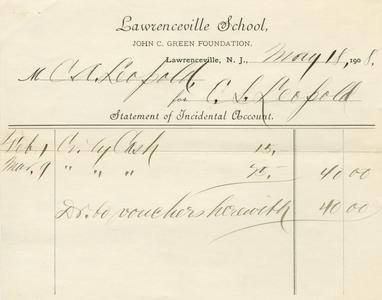 Lawrenceville School,
JOHN C. GREEN FOUNDATION.
Lawrenceville, N. J., May 18, 1908.
M C A Leopold
for C. S. Leopold
Statement of Incidental Account.
Feb 1 Cr. by Cash 15.
Mar. 9 " " " 25. 40 00
Dr. to vouchers herewith 40 00